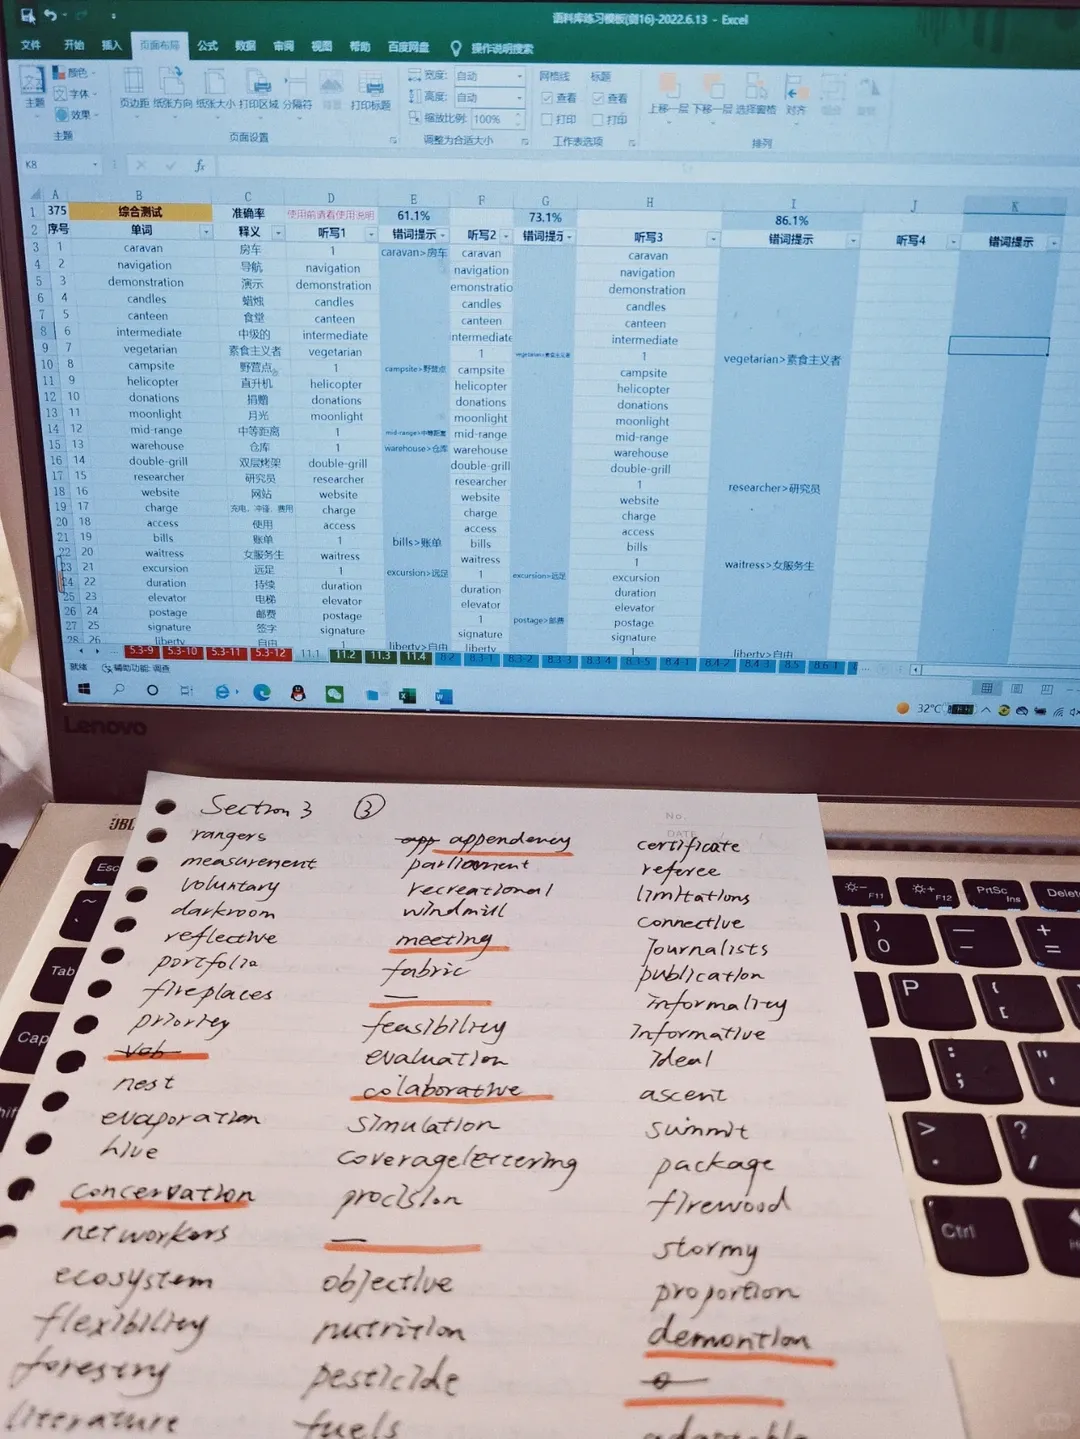 语料库练习模板(剑16)-2022.6.13 - Excel
文件 开始 插入 页面布局 公式 数据 审阅 视图 帮助 百度网盘 操作说明搜索
主题 颜色 字体 效果 页边距 纸张方向 纸张大小 打印区域 分隔符 背景 打印标题 宽度: 自动 高度: 自动 缩放比例: 100% 网格线 查看 打印 标题 查看 打印 上移一层 下移一层 选择窗格 对齐
主题 页面设置 调整为合适大小 工作表选项 排列
K8 fx
A B C D E F G H I J K
1 375 综合测试 准确率 使用前请看使用说明 61.1% 73.1% 86.1%
2 序号 单词 释义 听写1 错词提示 听写2 错词提示 听写3 错词提示 听写4 错词提示
3 1 caravan 房车 1 caravan>房车 caravan caravan
4 2 navigation 导航 navigation navigation navigation
5 3 demonstration 演示 demonstration emonstratio demonstration
6 4 candles 蜡烛 candles candles candles
7 5 canteen 食堂 canteen canteen canteen
8 6 intermediate 中级的 intermediate intermediate intermediate
9 7 vegetarian 素食主义者 vegetarian 1 vegetarian>素食主义者 1 vegetarian>素食主义者
10 8 campsite 野营点 1 campsite>野营点 campsite campsite
11 9 helicopter 直升机 helicopter helicopter helicopter
12 10 donations 捐赠 donations donations donations
13 11 moonlight 月光 moonlight moonlight moonlight
14 12 mid-range 中等距离 1 mid-range>中等距离 mid-range mid-range
15 13 warehouse 仓库 1 warehouse>仓库 warehouse warehouse
16 14 double-grill 双层烤架 double-grill double-grill double-grill
17 15 researcher 研究员 researcher researcher 1 researcher>研究员
18 16 website 网站 website website website
19 17 charge 充电、冲锋、费用 charge charge charge
20 18 access 使用 access access access
21 19 bills 账单 1 bills>账单 bills bills
22 20 waitress 女服务生 waitress waitress 1 waitress>女服务生
23 21 excursion 远足 1 excursion>远足 1 excursion>远足 excursion
24 22 duration 持续 duration duration duration
25 23 elevator 电梯 elevator elevator elevator
26 24 postage 邮费 postage 1 postage>邮费 postage
27 25 signature 签字 signature signature signature
28 26 liberty 自由 1 liberty>自由 liberty 1 liberty>自由
5.3-9 5.3-10 5.3-11 5.3-12 11.1 11.2 11.3 11.4 8.2 8.3-1 8.3-2 8.3-3 8.3-4 8.3-5 8.4-1 8.4-2 8.4-3 8.5 8.6-1
就绪 辅助功能: 调查
32°C
Lenovo
JBL
No.
DATE
Section 3 ③
rangers
measurement
voluntary
darkroom
reflective
portfolio
fireplaces
priority
vob
nest
evaporation
hive
concervation
networkers
ecosystem
flexibility
forestry
literature
app appendency
parliament
recreational
windmill
meeting
fabric
—
feasibility
evaluation
colaborative
simulation
coveragelettering
procision
—
objective
nutrition
pesticide
fuels
certificate
referee
limitations
connective
journalists
publication
informality
informative
ideal
ascent
summit
package
firewood
stormy
proportion
demontion
adaptable
Esc
F11
F12
PrtSc
Ins
Delete
~
)
0
—
+
=
Tab
P
{
[
Cap
:
;
"
>
.
?
/
Ctrl